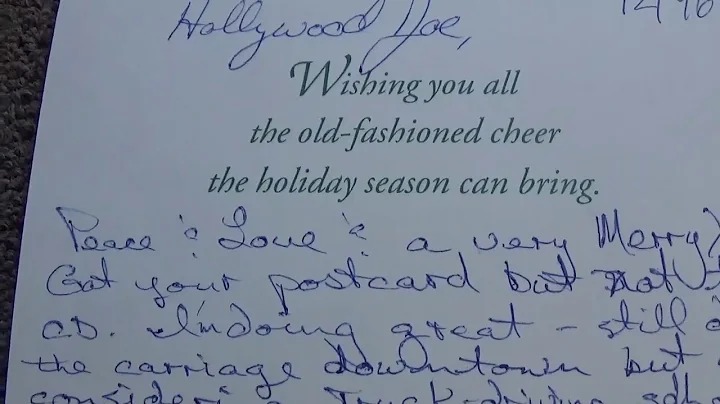 Hollywood Joe,
Wishing you all
the old-fashioned cheer
the holiday season can bring.
Peace & Love & a very Merry
Got your postcard but not
CD. I'm doing great - still
the carriage downtown but
Truck-driving